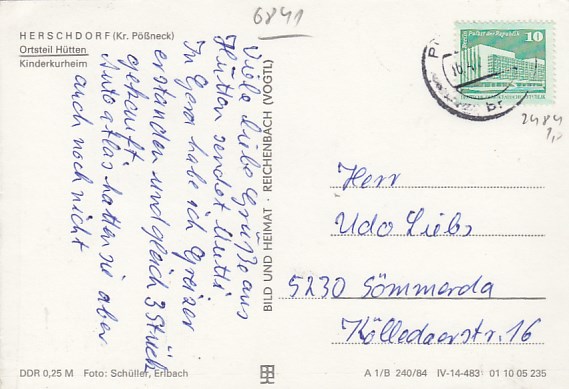 HERSCHDORF (Kr. Pößneck)
Ortsteil Hütten
Kinderkurheim
6841
Viele liebe Grüße aus
Hütten sendet Mutti
In Gera habe ich Greizer
erstanden und gleich 3 Stück
gekauft.
Autoatlas hatten sie aber
auch noch nicht
BILD UND HEIMAT · REICHENBACH (VOGTL)
Palast der Republik
10
2484
Herr
Udo Liebs
5230 Sömmerda
Kölledaerstr. 16
DDR 0,25 M Foto: Schüller, Erlbach
A 1/B 240/84 IV-14-483 01 10 05 235